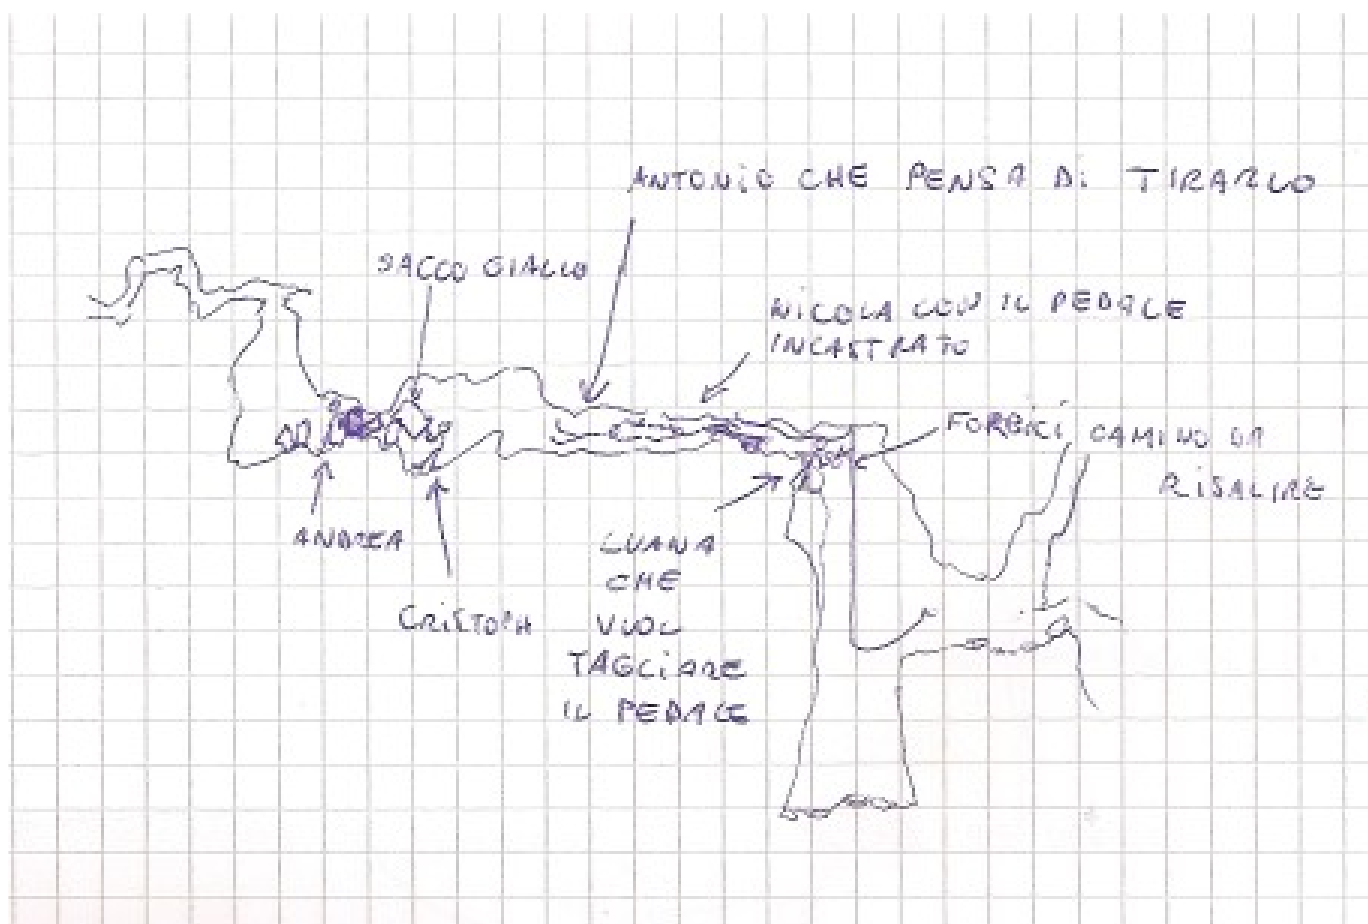 ANTONIO CHE PENSA DI TIRARLO
SACCO GIALLO
NICOLA CON IL PEDALE
INCASTRATO
FORBICI
CAMINO DA
RISALIRE
ANDREA
CRISTOPH
LUANA
CHE
VUOL
TAGLIARE
IL PEDALE